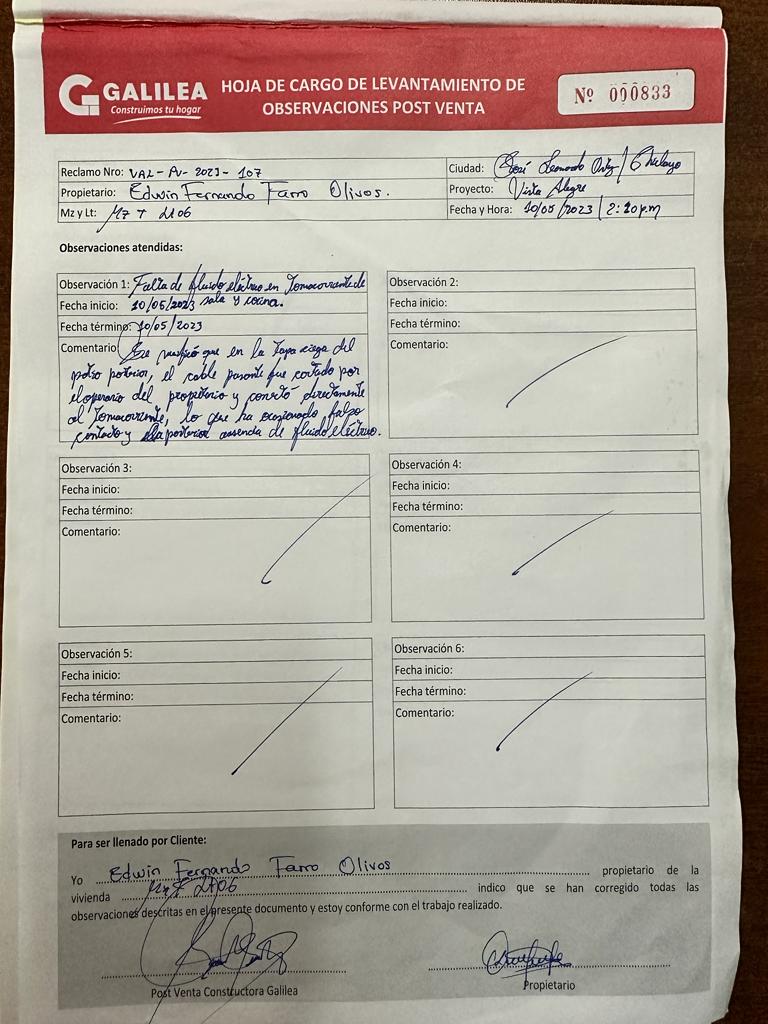 GALILEA
Construimos tu hogar
HOJA DE CARGO DE LEVANTAMIENTO DE
OBSERVACIONES POST VENTA
Nº 000833
Reclamo Nro: VAL-PV-2023-107
Ciudad: José Leonardo Ortiz / Chiclayo
Propietario: Edwin Fernando Farro Olivos.
Proyecto: Vista Alegre
Mz y Lt: Mz T Lt 06
Fecha y Hora: 10/05/2023 / 2:20 p.m
Observaciones atendidas:
Observación 1: Falta de fluido eléctrico en Tomacorriente de
sala y cocina.
Fecha inicio: 10/05/2023
Fecha término: 10/05/2023
Comentario: Se verificó que en la Tapa ciega del
patio posterior, el cable pasante fue cortado por
el operario del propietario y conectó directamente
al Tomacorriente, lo que ha ocasionado falso
contacto y la posterior ausencia de fluido eléctrico.
Observación 2:
Fecha inicio:
Fecha término:
Comentario:
Observación 3:
Fecha inicio:
Fecha término:
Comentario:
Observación 4:
Fecha inicio:
Fecha término:
Comentario:
Observación 5:
Fecha inicio:
Fecha término:
Comentario:
Observación 6:
Fecha inicio:
Fecha término:
Comentario:
Para ser llenado por Cliente:
Yo Edwin Fernando Farro Olivos propietario de la
vivienda Mz T Lt 06 indico que se han corregido todas las
observaciones descritas en el presente documento y estoy conforme con el trabajo realizado.
Post Venta Constructora Galilea
Propietario